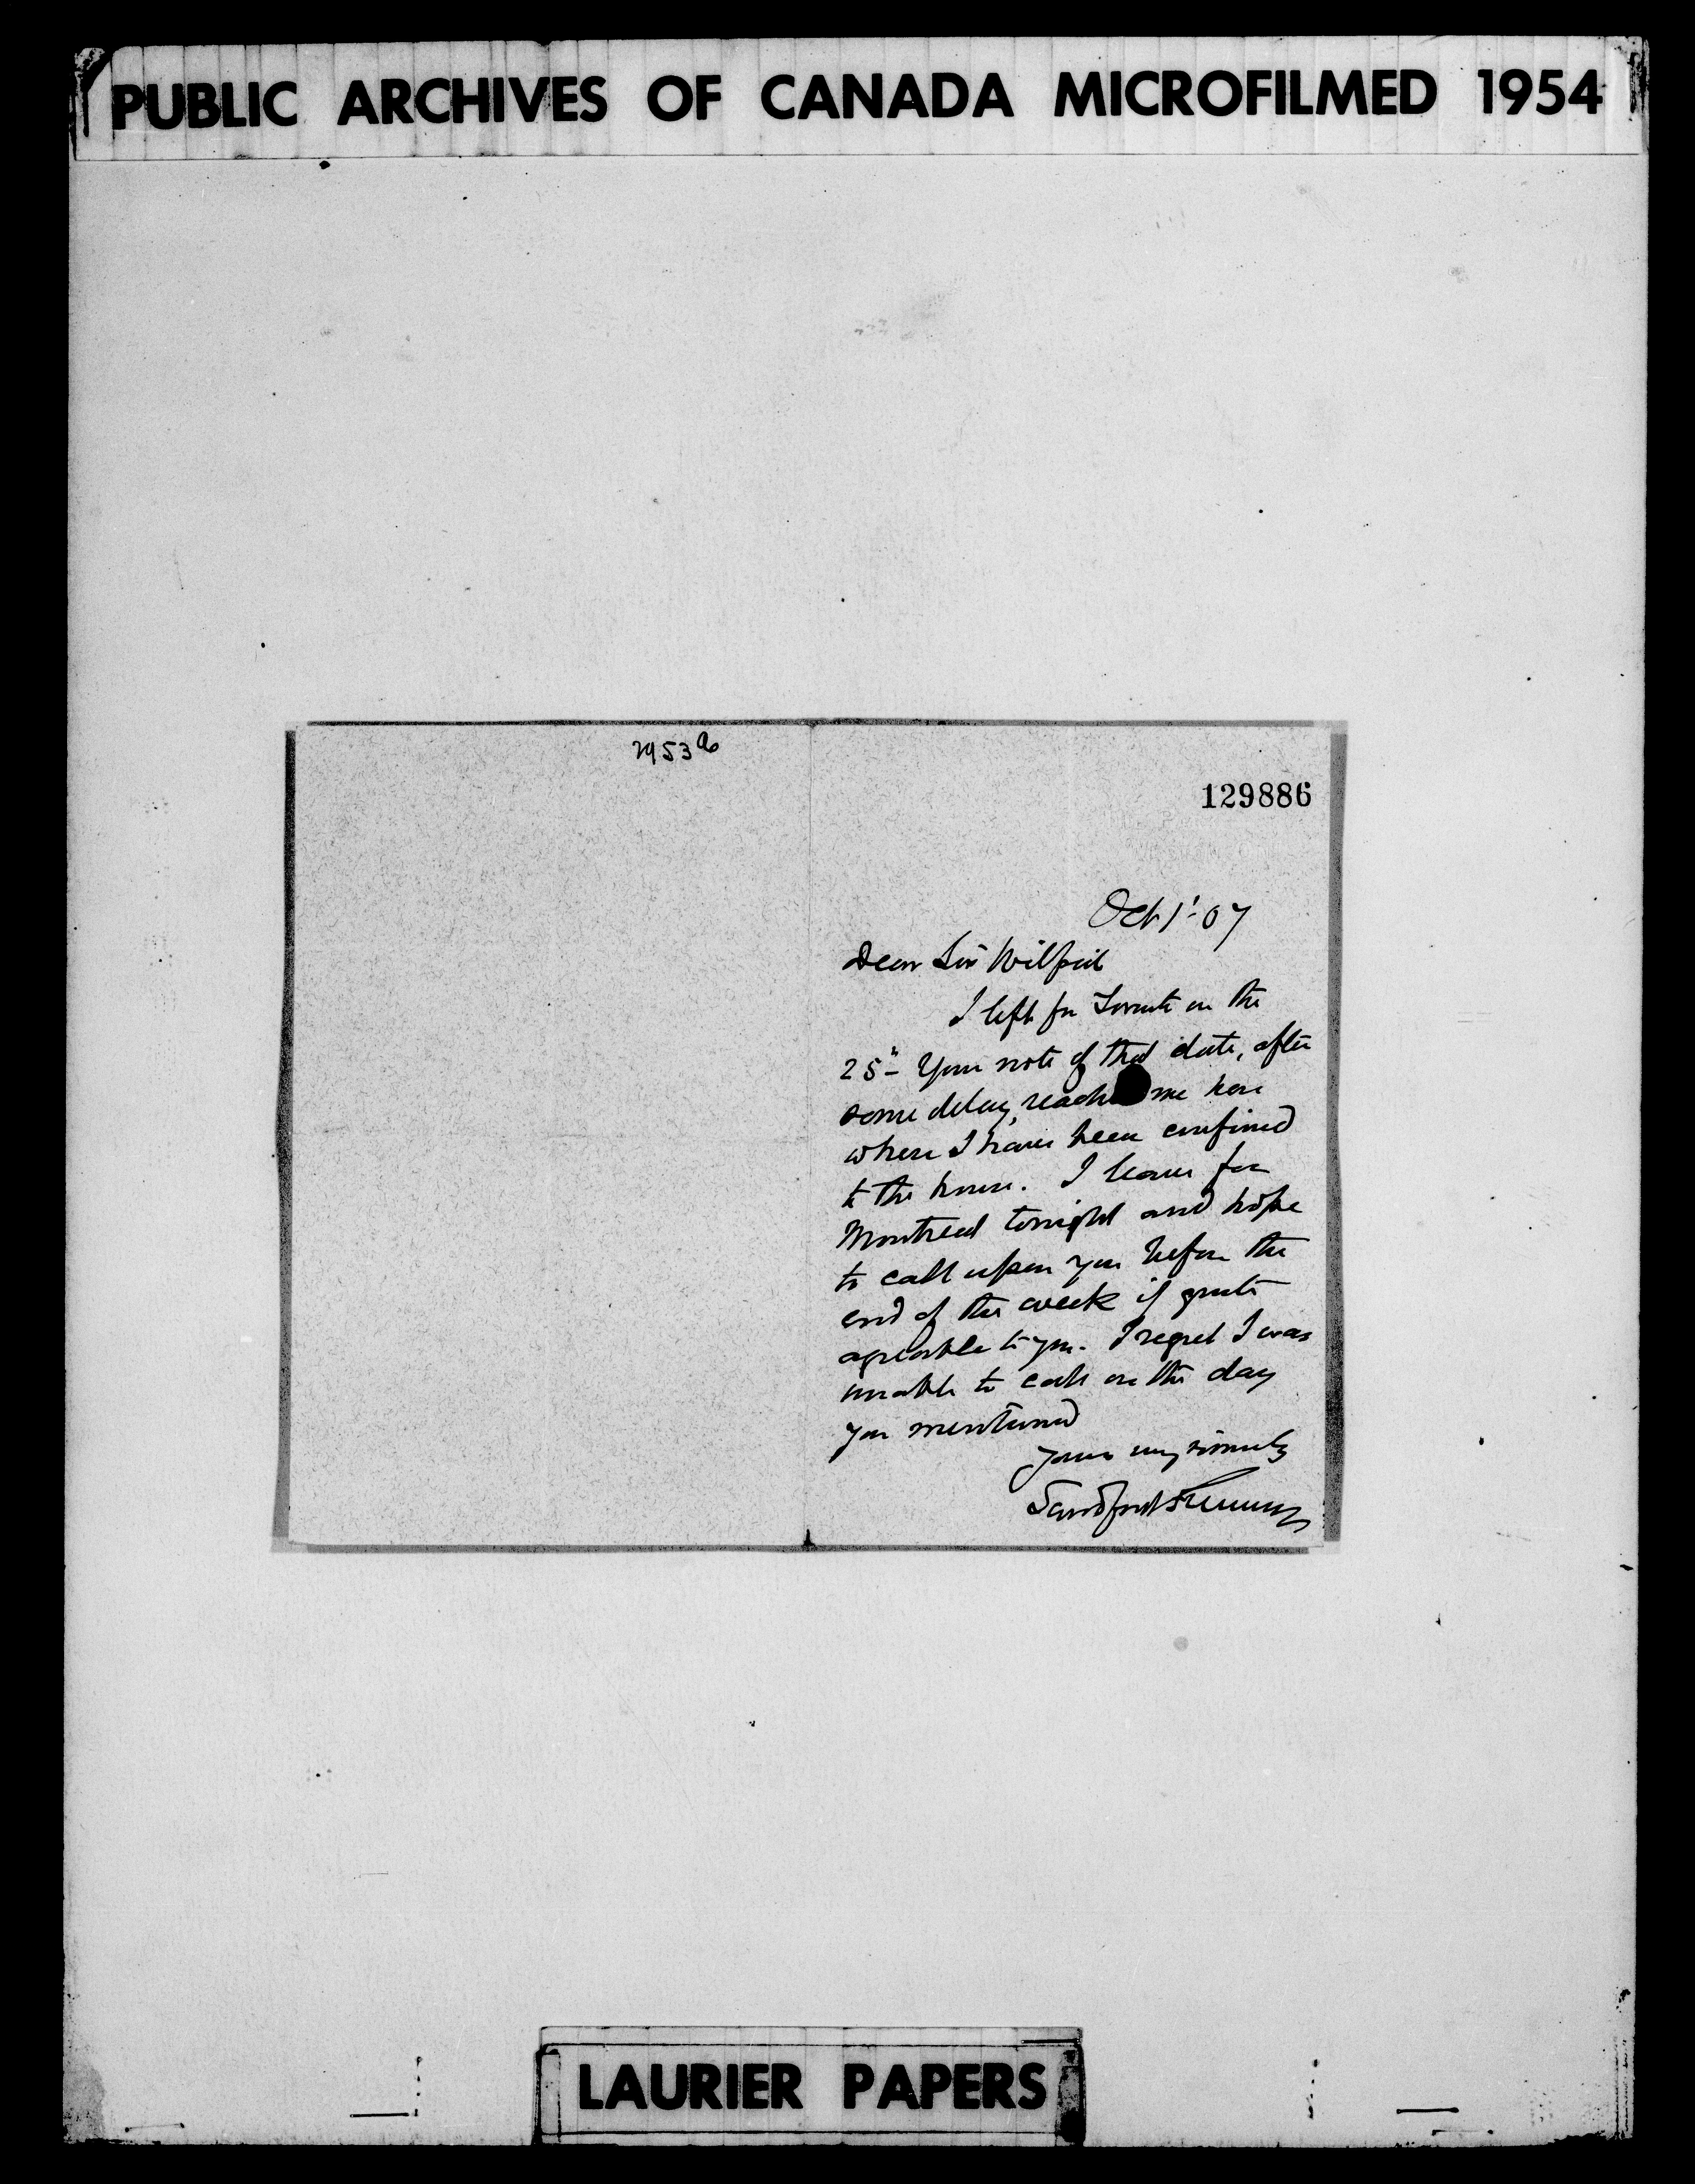 PUBLIC ARCHIVES OF CANADA MICROFILMED 1954
129886
Oct 1st - 07
Dear Sir Wilfrid
I left for Toronto on the
25th - Your note of that date, after
some delay, reached me here
where I have been confined
to the house. I leave for
Montreal tonight and hope
to call upon you before the
end of the week if quite
agreeable to you. I regret I was
unable to call on the day
you mentioned
Yours very sincerely
Sandford Fleming
LAURIER PAPERS